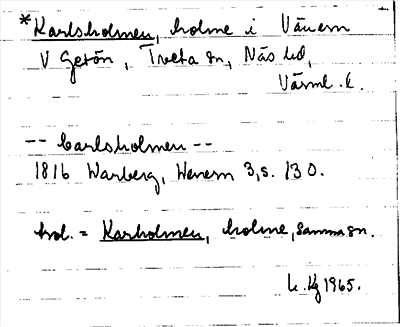 *Karlsholmen, holme i Vänern
V Getön, Tveta sn, Näs hd,
Värml. l.
-- Carlsholmen --
1816 Warberg, Wenern 3, s. 130.
trol. = Karholmen, holme, samma sn.
1965.